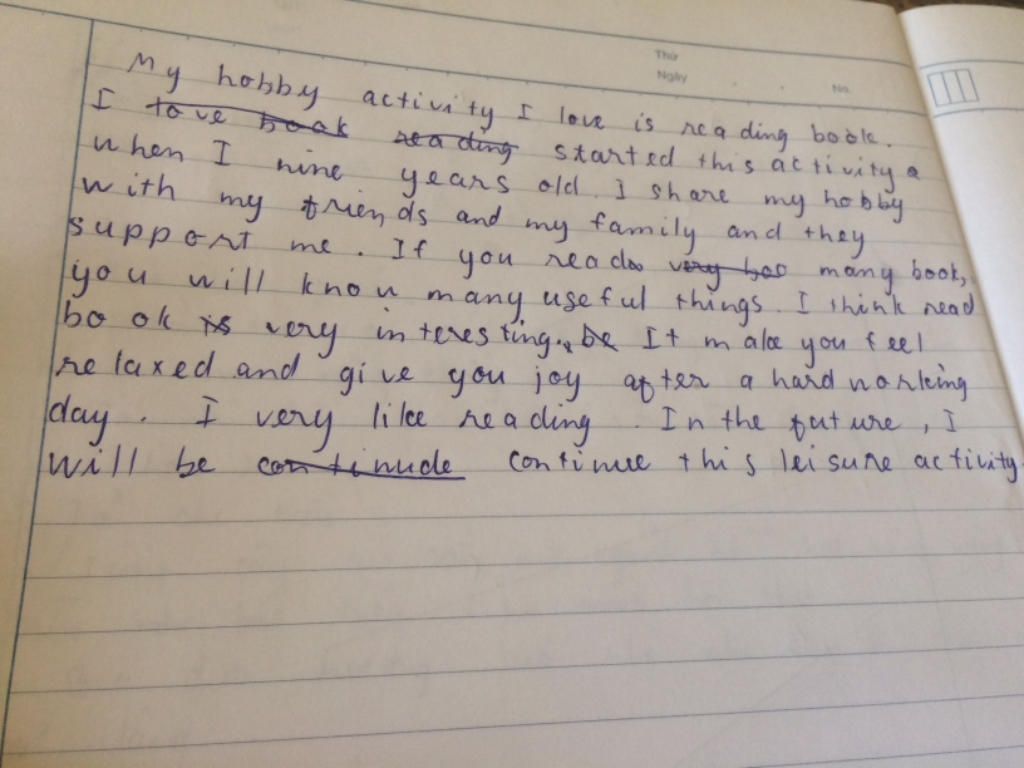 Thứ
Ngày No.
My hobby activity I love is reading book.
I love book reading started this activity
when I nine years old. I share my hobby
with my friends and my family and they
support me. If you read very boo many book,
you will know many useful things. I think read
book is very interesting. be It make you feel
relaxed and give you joy after a hard working
day. I very like reading. In the future, I
will be continude continue this leisure activity.